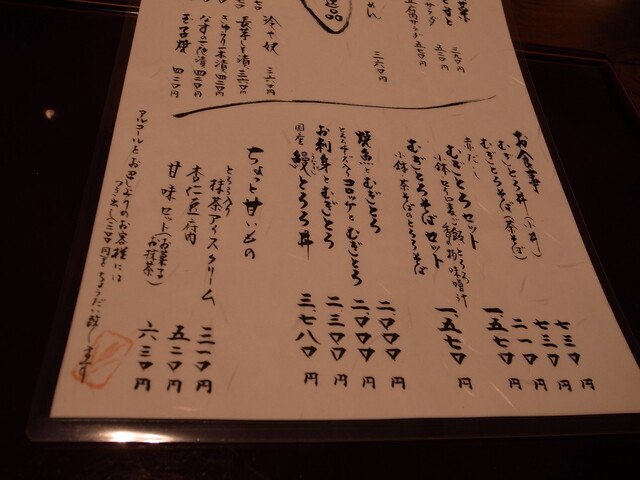 三六〇円
五五〇円
三六〇円
冷や奴 三六〇円
長芋しそ漬 三六〇円
四三〇円
四三〇円
玉子焼 四三〇円
お食事
むぎとろ丼(小丼) 七三〇円
むぎとろそば(茶そば) 七三〇円
赤だし 二一〇円
むぎとろセット 一、五七〇円
むぎとろそばセット 一、五七〇円
小鉢 茶そばのとろろそば
焼魚とむぎとろ 二、〇〇〇円
コロッケとむぎとろ 二、〇〇〇円
お刺身とむぎとろ 二、三〇〇円
国産 鰻とろろ丼 三、七八〇円
ちょっと甘いもの
とろろ入り 抹茶アイスクリーム 三一〇円
杏仁豆腐 五二〇円
甘味セット(お菓子とお抹茶) 六三〇円
アルコールをお召し上りのお客様には
つき出し(三百円)をちょうだい致します